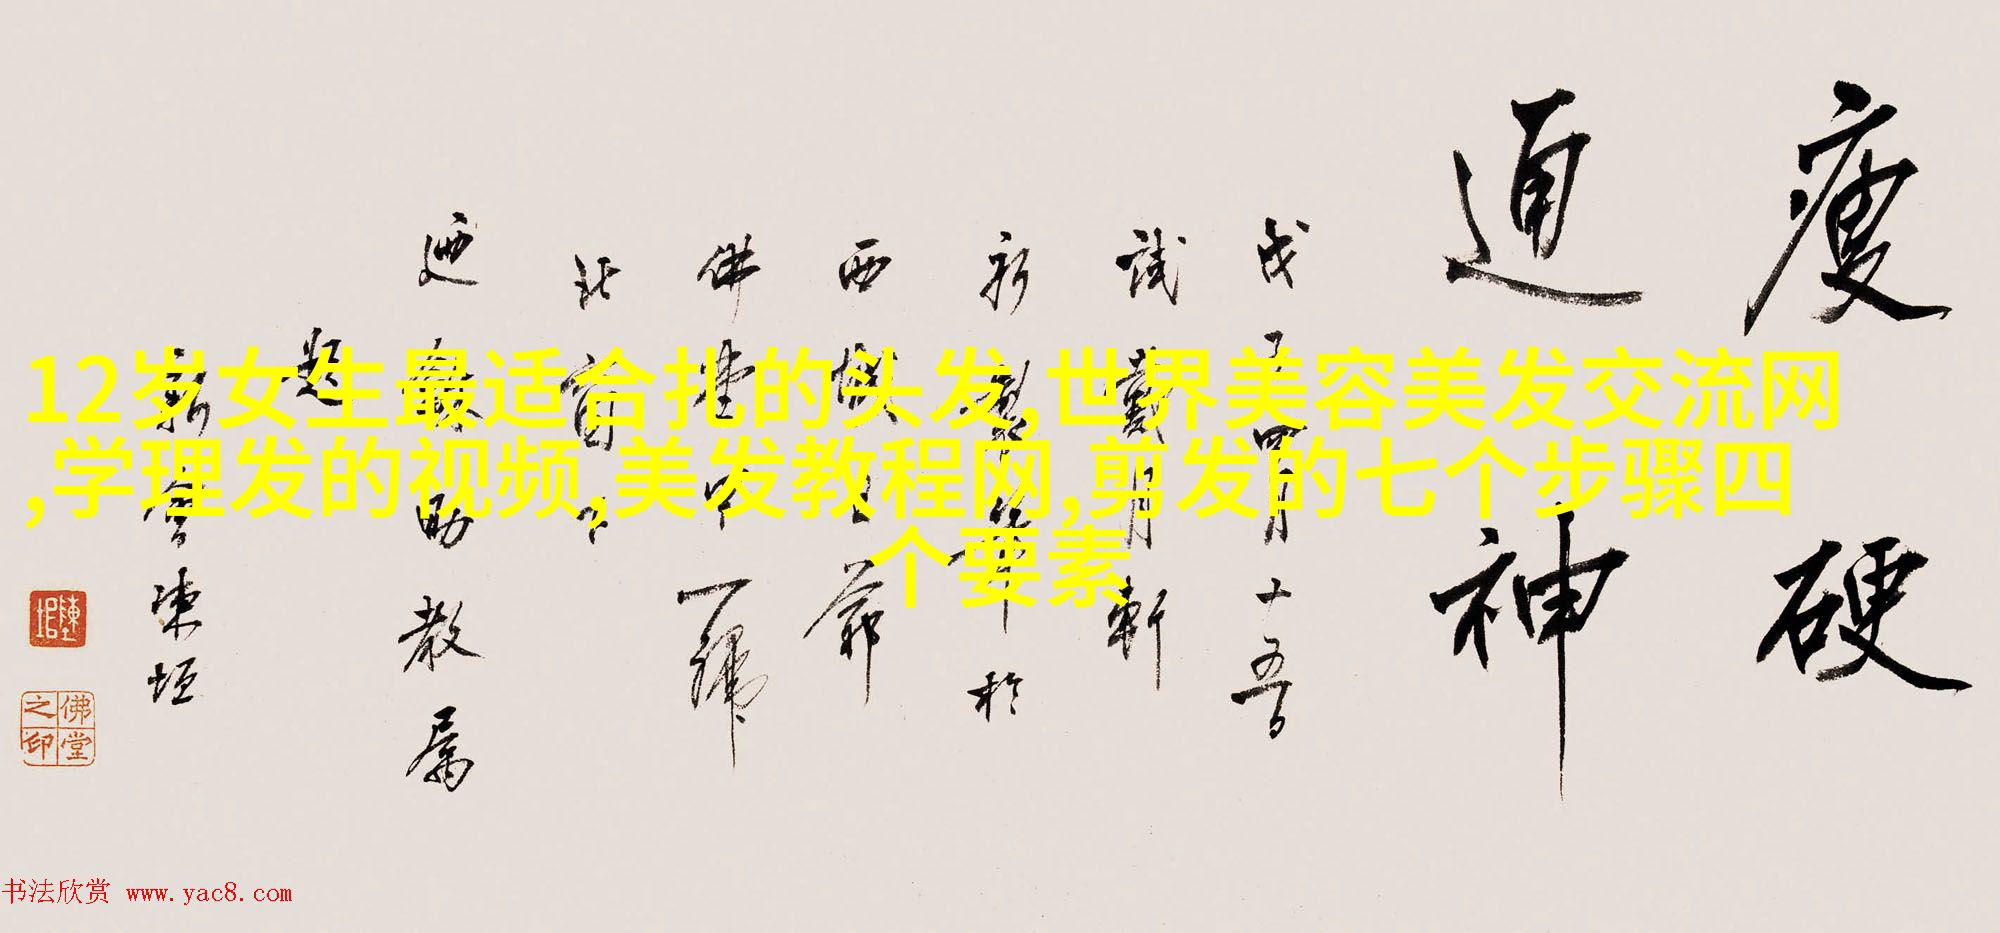 瘦硬
通神
戊子四月十五日
試戴月軒
新製筆於
西樵
佛堂
北窗下
迺
助教属
題
新會陳垣
陳垣
佛堂之印
12岁女生最适合扎的头发,世界美容美发交流网
,学理发的视频,美发教程网,剪发的七个步骤四
个要素
书法欣赏 www.yac8.com